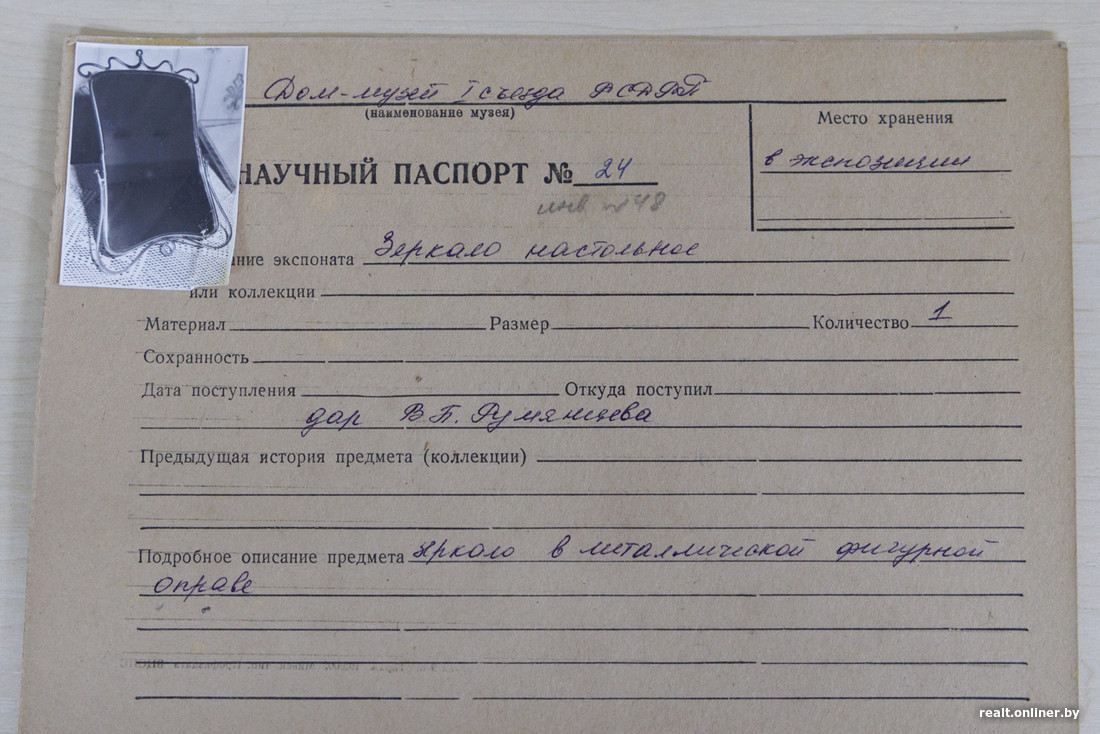 Дом-музей I съезда РСДРП
(наименование музея)
Место хранения
в экспозиции
НАУЧНЫЙ ПАСПОРТ № 24
инв № 48
ние экспоната Зеркало настольное
или коллекции
Материал Размер Количество 1
Сохранность
Дата поступления Откуда поступил
дар В.П. Румянцева
Предыдущая история предмета (коллекции)
Подробное описание предмета зркало в металлической фигурной
оправе
realt.onliner.by